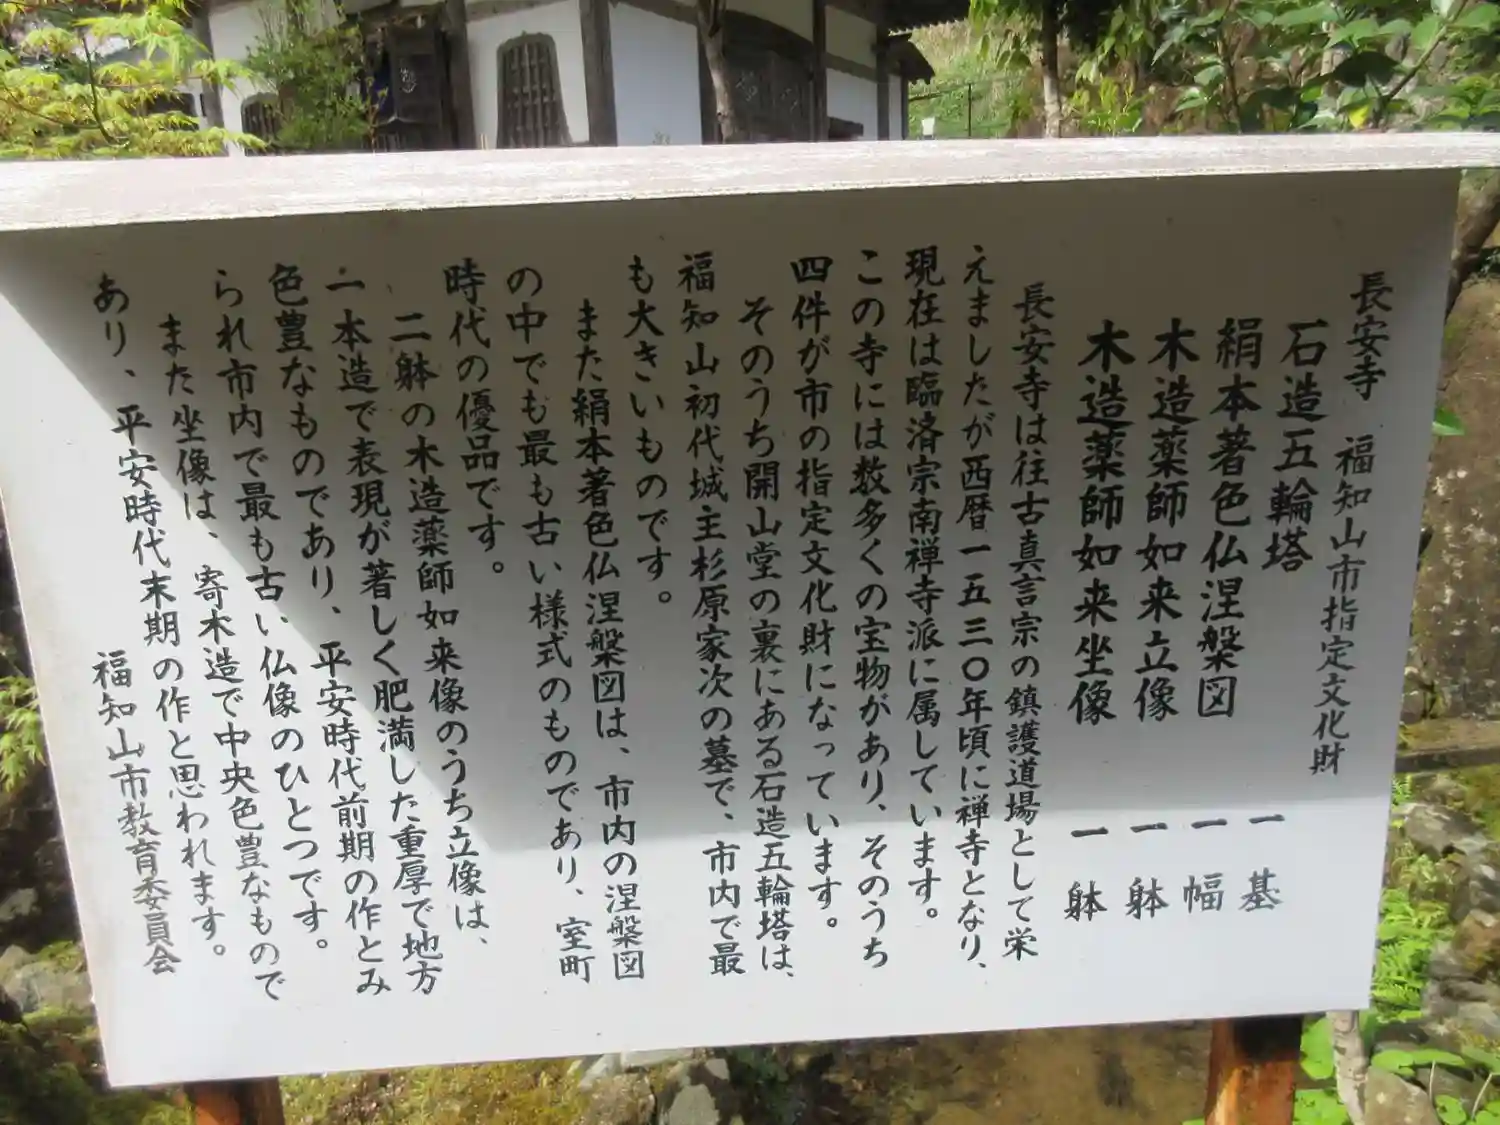 長安寺 福知山市指定文化財
石造五輪塔 一基
絹本著色仏涅槃図 一幅
木造薬師如来立像 一躰
木造薬師如来坐像 一躰
長安寺は往古真言宗の鎮護道場として栄
えましたが西暦一五三〇年頃に禅寺となり、
現在は臨済宗南禅寺派に属しています。
この寺には数多くの宝物があり、そのうち
四件が市の指定文化財になっています。
そのうち開山堂の裏にある石造五輪塔は、
福知山初代城主杉原家次の墓で、市内で最
も大きいものです。
また絹本著色仏涅槃図は、市内の涅槃図
の中でも最も古い様式のものであり、室町
時代の優品です。
二躰の木造薬師如来像のうち立像は、
一木造で表現が著しく肥満した重厚で地方
色豊なものであり、平安時代前期の作とみ
られ市内で最も古い仏像のひとつです。
また坐像は、寄木造で中央色豊なもので
あり、平安時代末期の作と思われます。
福知山市教育委員会